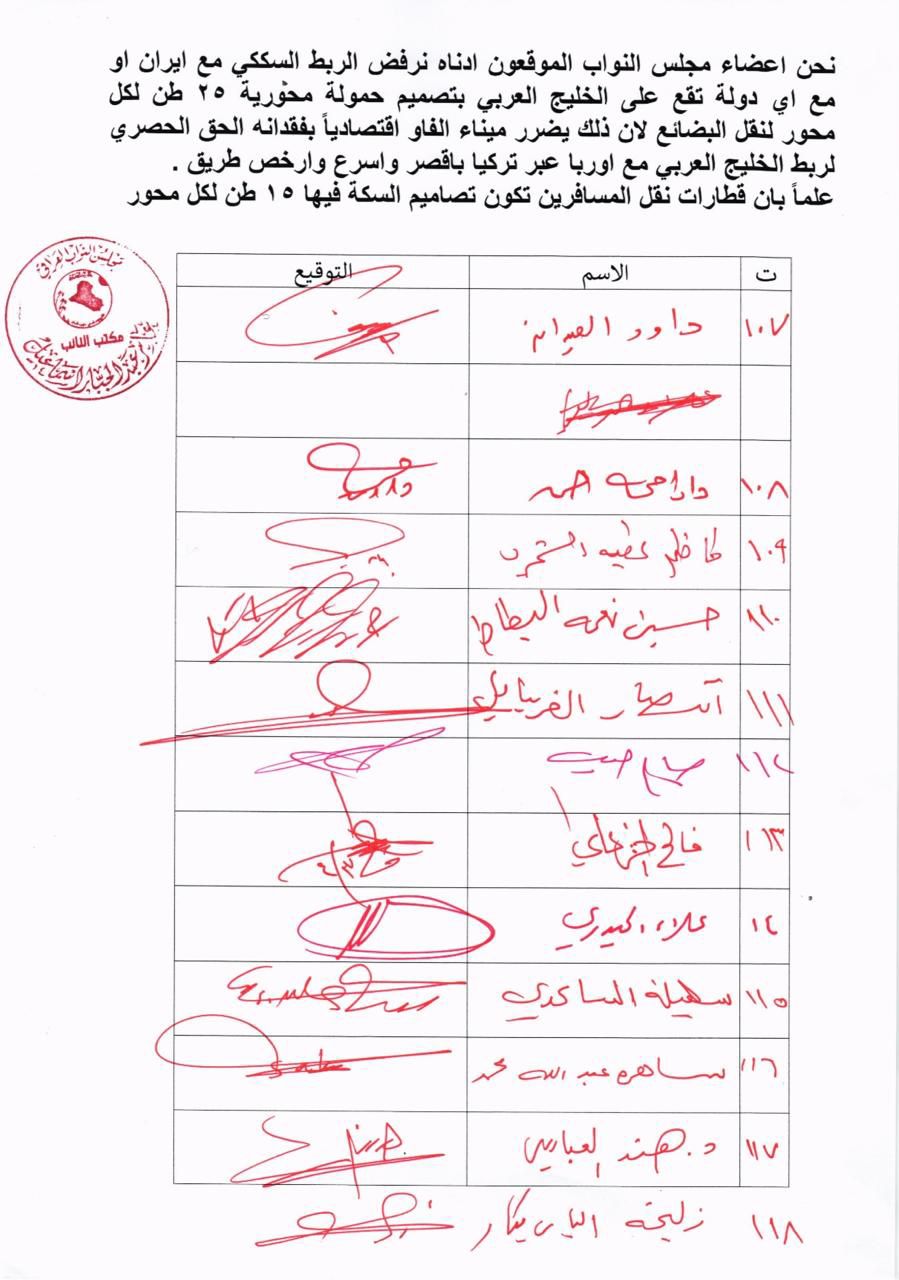 نحن اعضاء مجلس النواب الموقعون ادناه نرفض الربط السككي مع ايران او
مع اي دولة تقع على الخليج العربي بتصميم حمولة محورية ٢٥ طن لكل
محور لنقل البضائع لان ذلك يضرر ميناء الفاو اقتصادياً بفقدانه الحق الحصري
لربط الخليج العربي مع اوربا عبر تركيا باقصر واسرع وارخص طريق .
علماً بان قطارات نقل المسافرين تكون تصاميم السكة فيها ١٥ طن لكل محور
مجلس النواب العراقي
مكتب النائب
عبد الجبار
ت الاسم التوقيع
١٠٧ داود
١٠٨ احمد
١٠٩ كاظم عطيه الشمري
١١٠ حسين نعمه البطاط
١١١ انتصار
١١٢
١١٣ فالح الخزعلي
١٤ علاء الحيدري
١١٥ سهيلة الساعدي
١١٦ ساهره عبد الله محمد
١١٧ د. هند العباسي
١١٨ زليخة الياس بكار